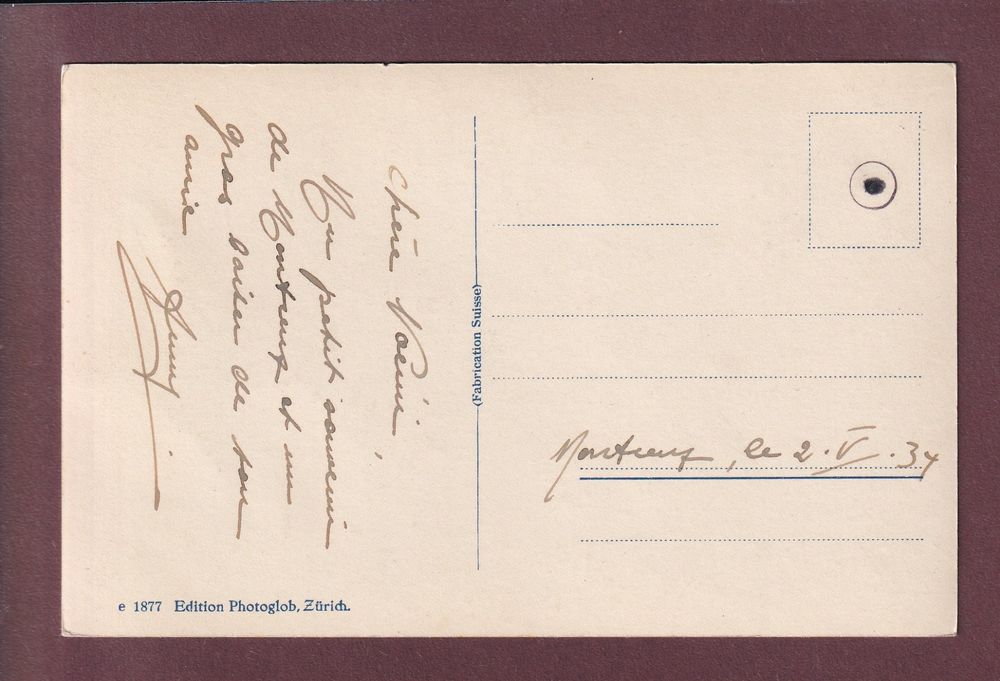 Chère Noémi,
Un petit souvenir
de Montreux et un
gros baiser de ton
amie
(Fabrication Suisse)
Montreux, le 2.V.34
e 1877 Edition Photoglob, Zürich.